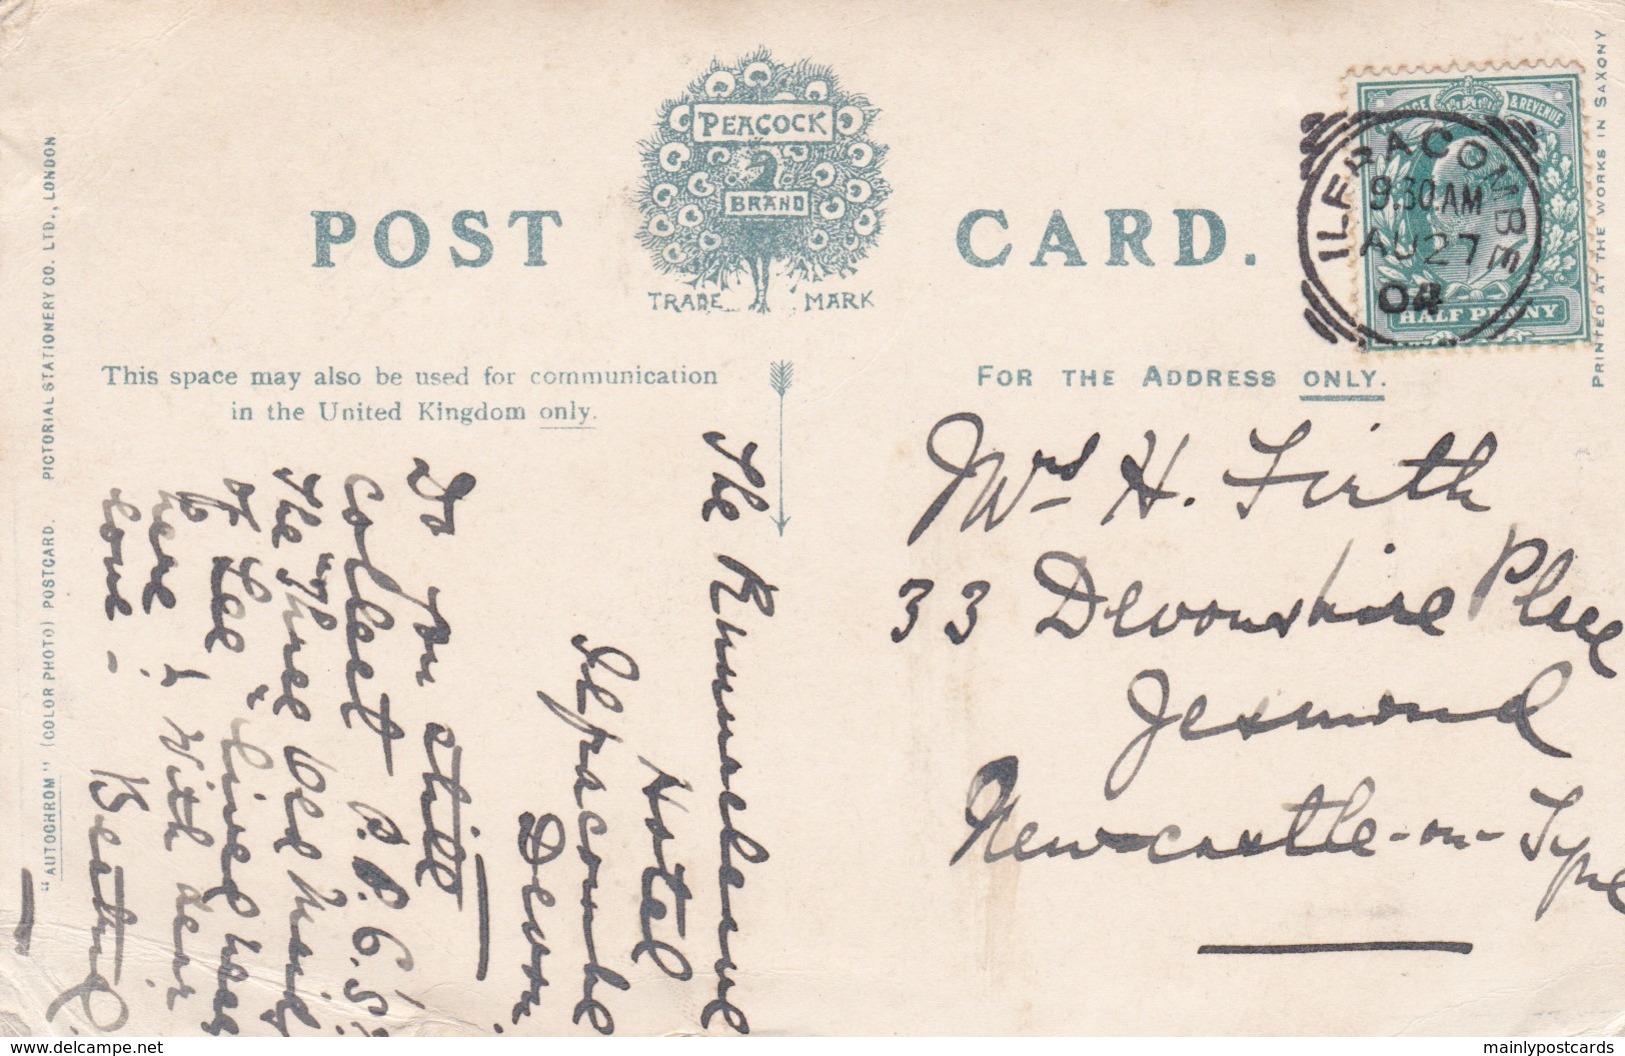 POST CARD.
PEACOCK
BRAND
TRADE MARK
This space may also be used for communication
in the United Kingdom only.
FOR THE ADDRESS ONLY.
POSTAGE & REVENUE
HALF PENNY
ILFRACOMBE
9.30AM
AU 27
04
PRINTED AT THE WORKS IN SAXONY
"AUTOCHROM" (COLOR PHOTO) POSTCARD. PICTORIAL STATIONERY CO. LTD., LONDON
Mrs H. Firth
33 Devonshire Place
Jesmond
Newcastle-on-Tyne
The Runnacleave
Hotel
Ilfracombe
Devon
Do you still
collect P.P.C.'s?
The "Three Old Maids
of Lee" lived near
here! With dear
love - Beattie.
delcampe.net
mainlypostcards